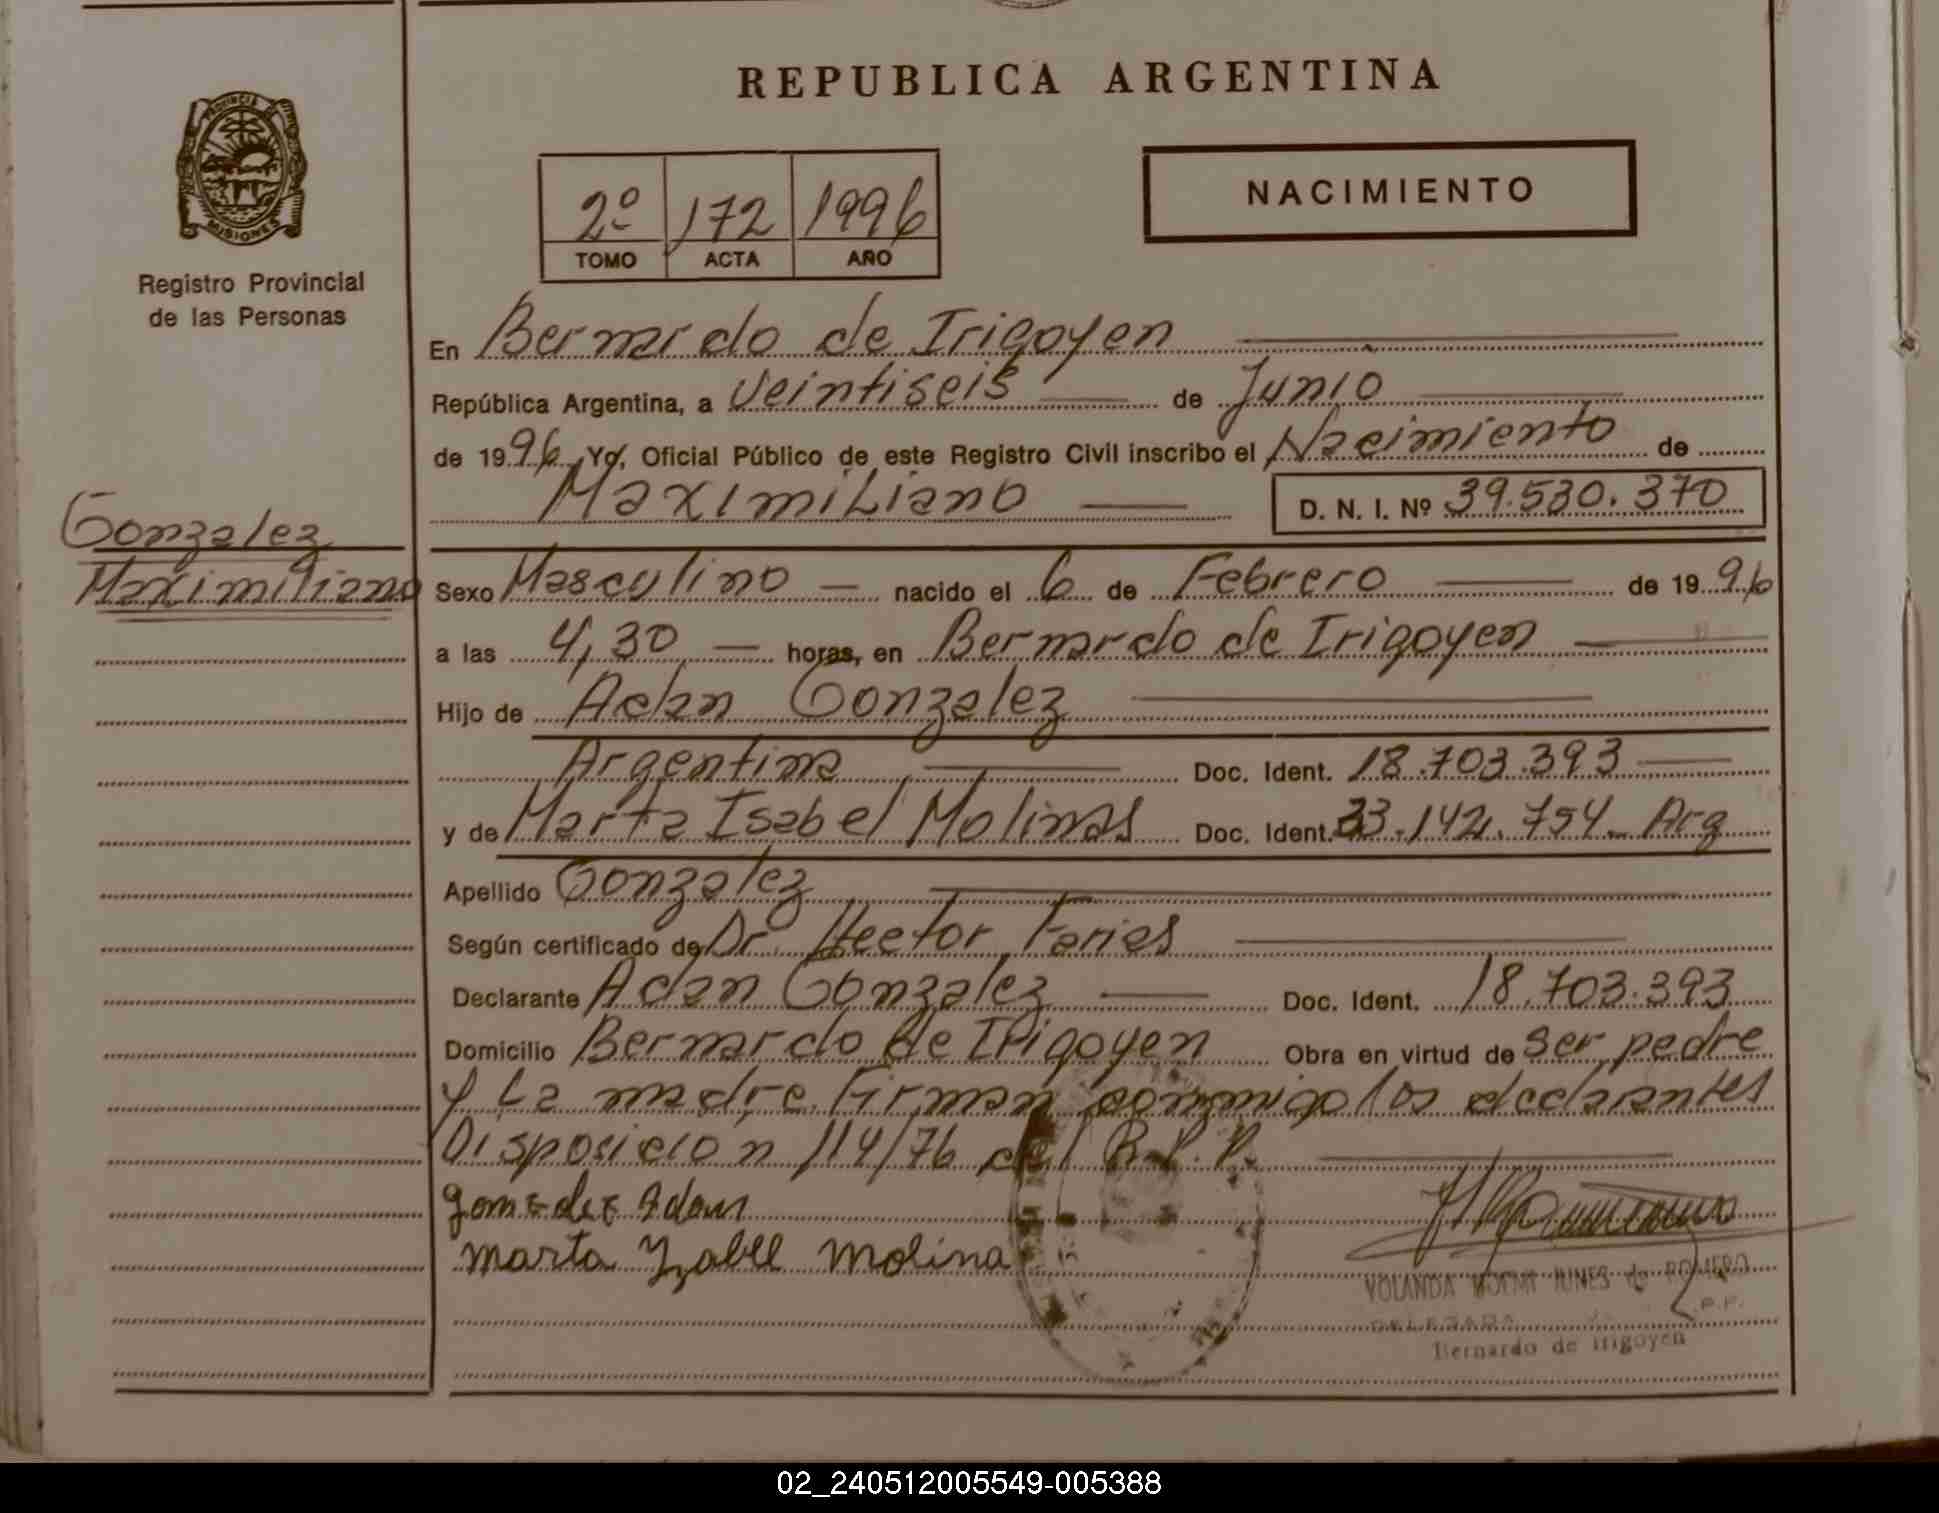 REPUBLICA ARGENTINA
PROVINCIA DE
MISIONES
Registro Provincial
de las Personas
2º 172 1996
TOMO ACTA AÑO
NACIMIENTO
En Bernardo de Irigoyen
República Argentina, a veintiseis de Junio
de 1996 Yo, Oficial Público de este Registro Civil inscribo el Nacimiento de
Maximiliano D. N. I. Nº 39.530.370
Gonzalez
Maximiliano
Sexo Masculino nacido el 6 de Febrero de 1996
a las 4,30 horas, en Bernardo de Irigoyen
Hijo de Adan Gonzalez
Argentina Doc. Ident. 18.703.393
y de Marta Isabel Molinas Doc. Ident. 33.142.754. Arg
Apellido Gonzalez
Según certificado de Dr. Hector Farias
Declarante Adan Gonzalez Doc. Ident. 18.703.393
Domicilio Bernardo de Irigoyen Obra en virtud de ser padre
y La madre. Firman conmigo los declarantes
Disposicion 114/76 del R.P.P.
Gonzalez Adan
Marta Yzabel Molina
YOLANDA NOEMI de ROMERO
DELEGADA R.P.P.
Bernardo de Irigoyen
02_240512005549-005388